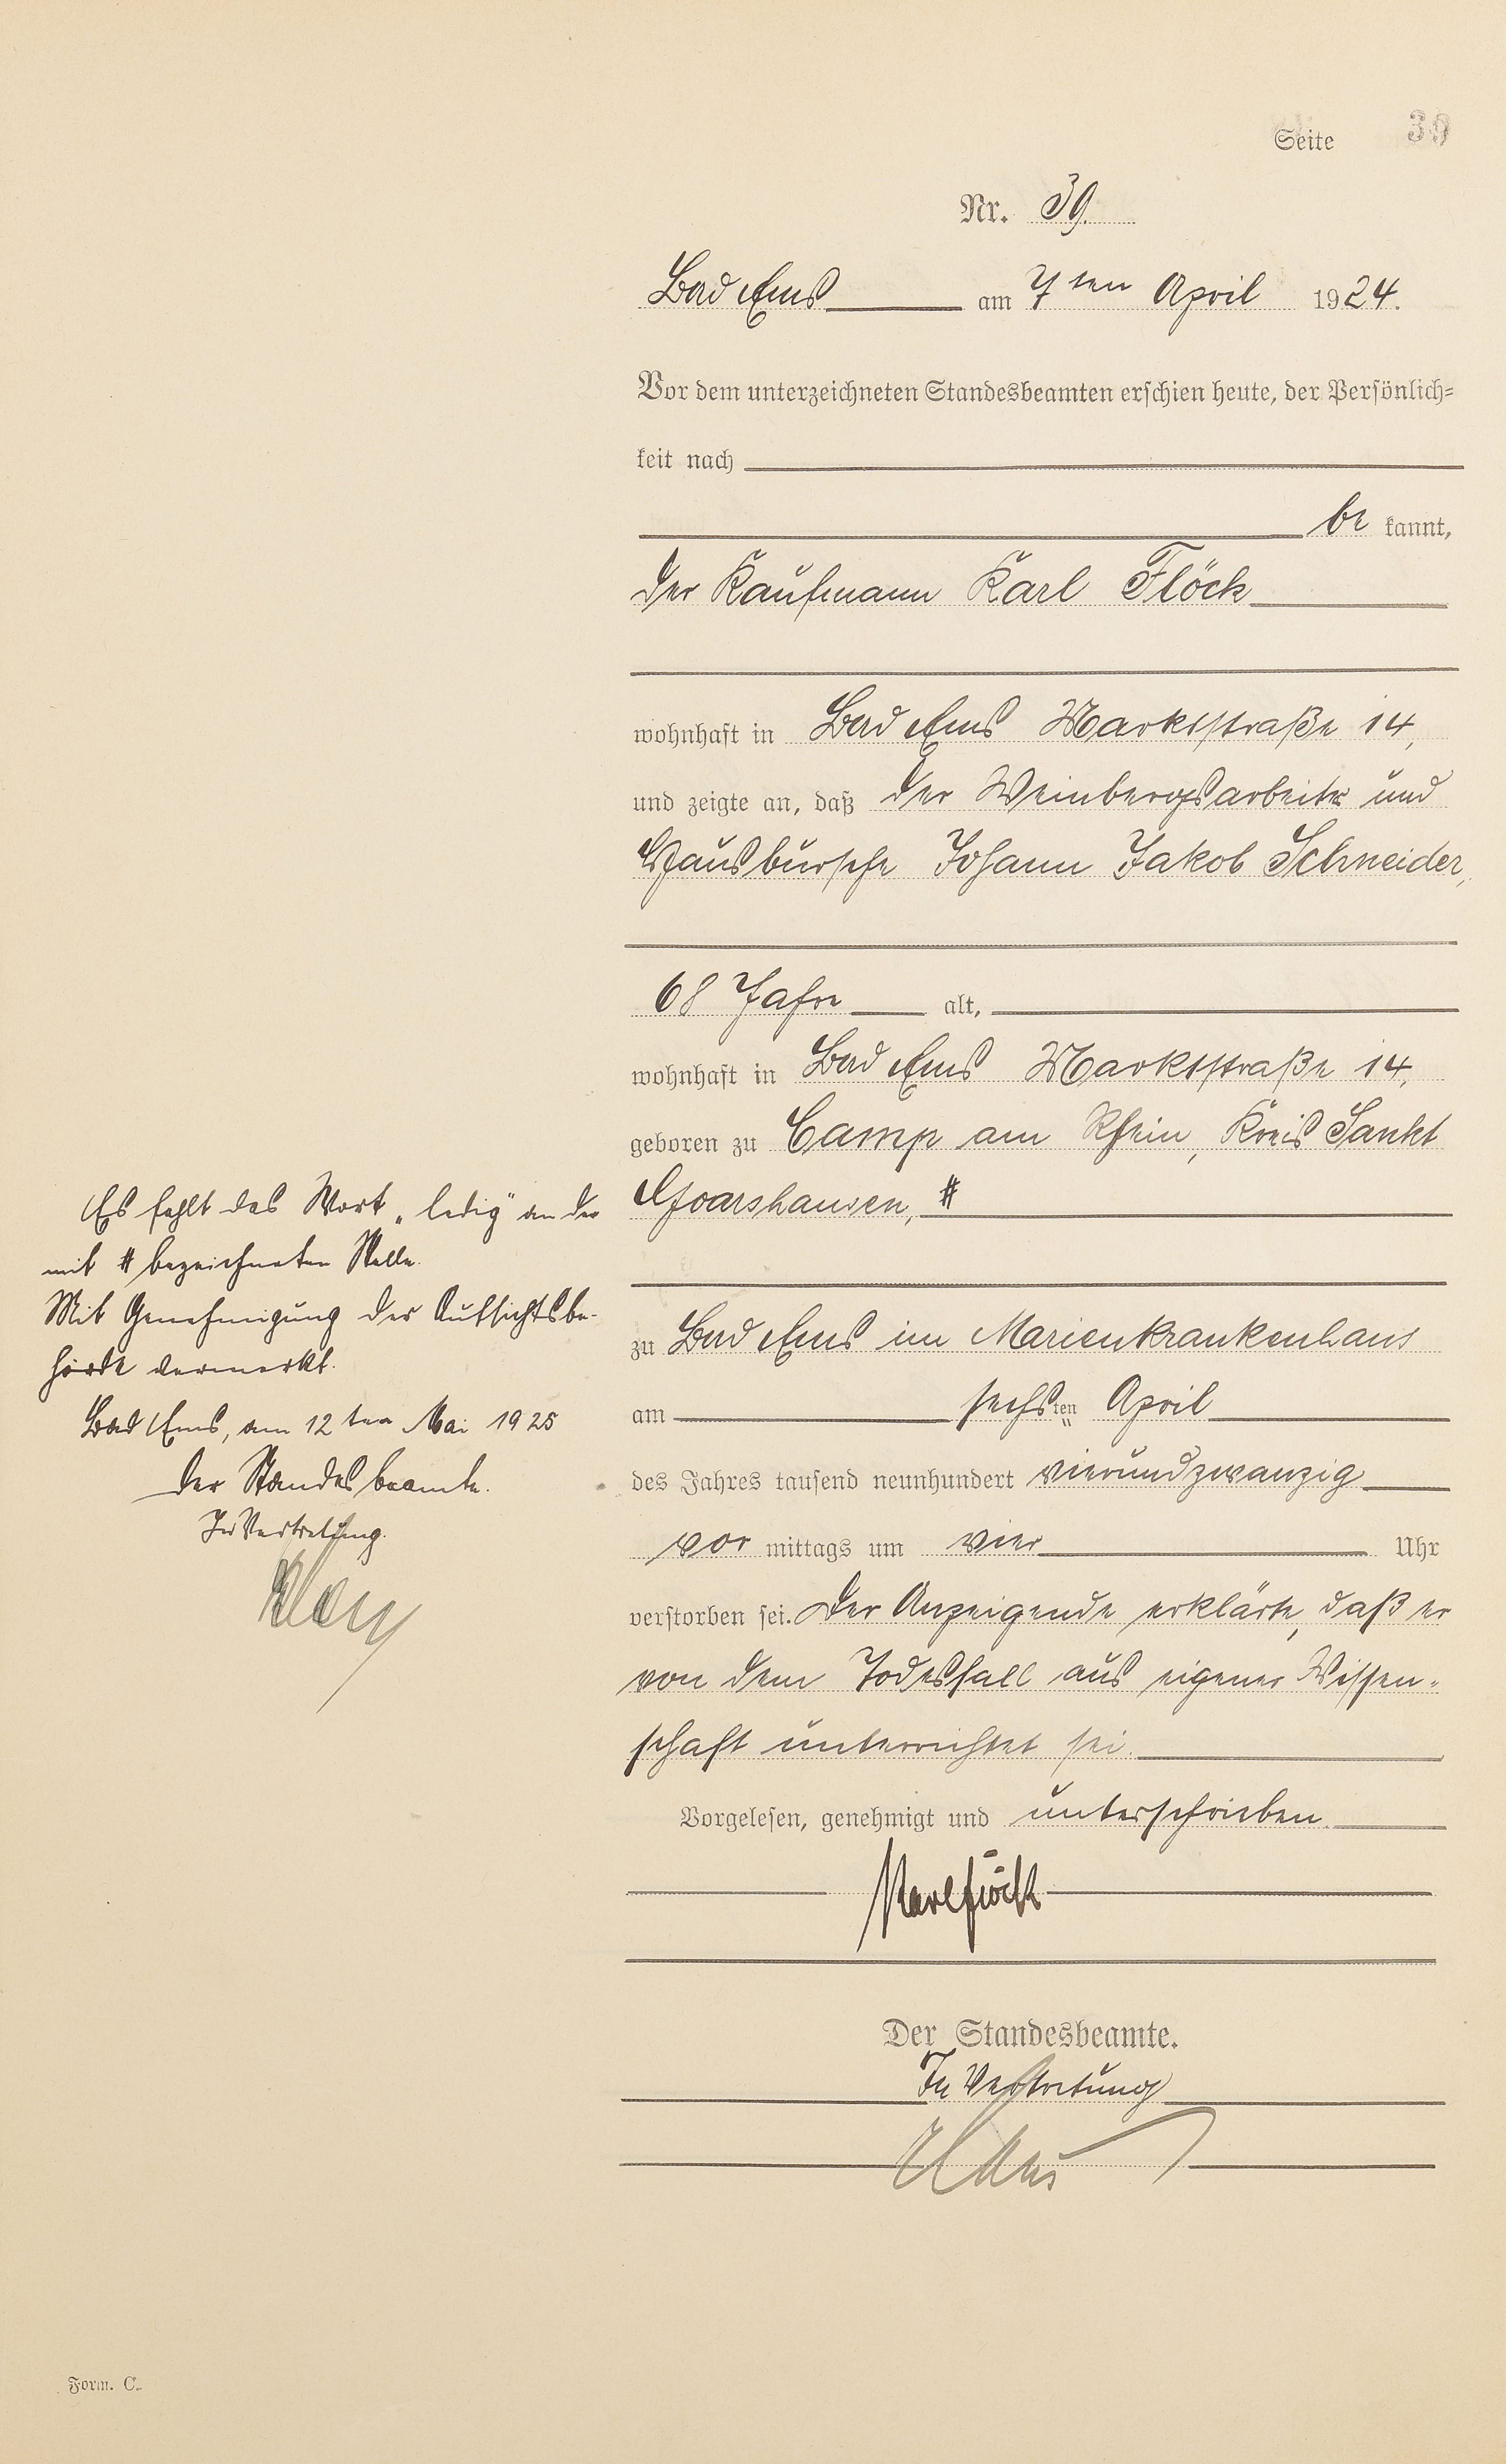 Seite 39
Nr. 39.
Bad Ems am 7ten April 1924.
Vor dem unterzeichneten Standesbeamten erschien heute, der Persönlich=
keit nach
be kannt,
der Kaufmann Karl Flöck
wohnhaft in Bad Ems Marktstraße 14,
und zeigte an, daß der Weinbergsarbeiter und
Hausbursche Johann Jakob Schneider,
68 Jahre alt,
wohnhaft in Bad Ems Marktstraße 14,
geboren zu Camp am Rhein, Kreis Sankt
Goarshausen, #
zu Bad Ems im Marienkrankenhaus
am sechsten April
des Jahres tausend neunhundert vierundzwanzig
vor mittags um vier Uhr
verstorben sei. Der Anzeigende erklärte, daß er
von dem Todesfall aus eigener Wissen=
schaft unterrichtet sei.
Vorgelesen, genehmigt und unterschrieben.
Karl Flöck
Der Standesbeamte.
In Vertretung
Es fehlt das Wort „ledig" an der
mit # bezeichneten Stelle.
Mit Genehmigung der Aufsichtsbe-
hörde vermerkt.
Bad Ems, am 12ten Mai 1925
Der Standesbeamte.
In Vertretung.
Form. C.